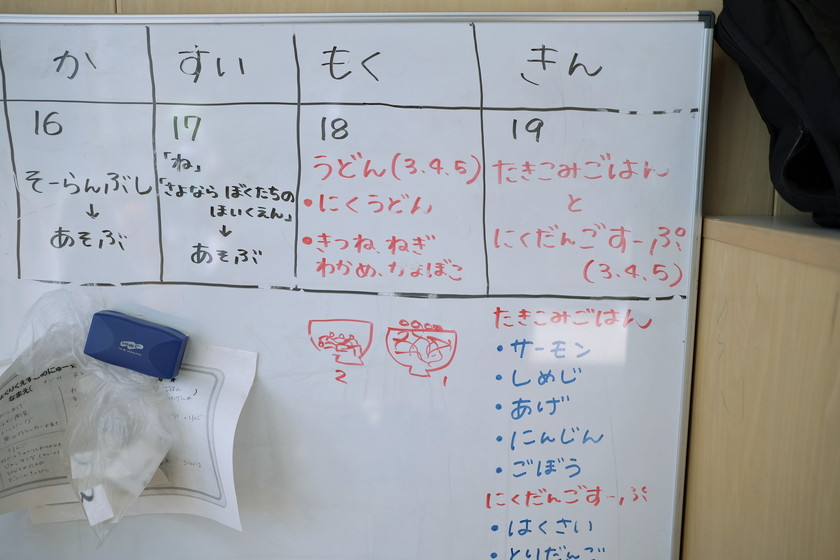 か
すい
もく
きん
16
そーらんぶし
↓
あそぶ
17
「ね」
「さよなら ぼくたちの
ほいくえん」
↓
あそぶ
18
うどん(3.4.5)
・にくうどん
・きつね、ねぎ
わかめ、ちょぼこ
2
1
19
たきこみごはん
と
にくだんごすーぷ
(3.4.5)
たきこみごはん
・サーモン
・しめじ
・あげ
・にんじん
・ごぼう
にくだんごすーぷ
・はくさい
・とりだんご